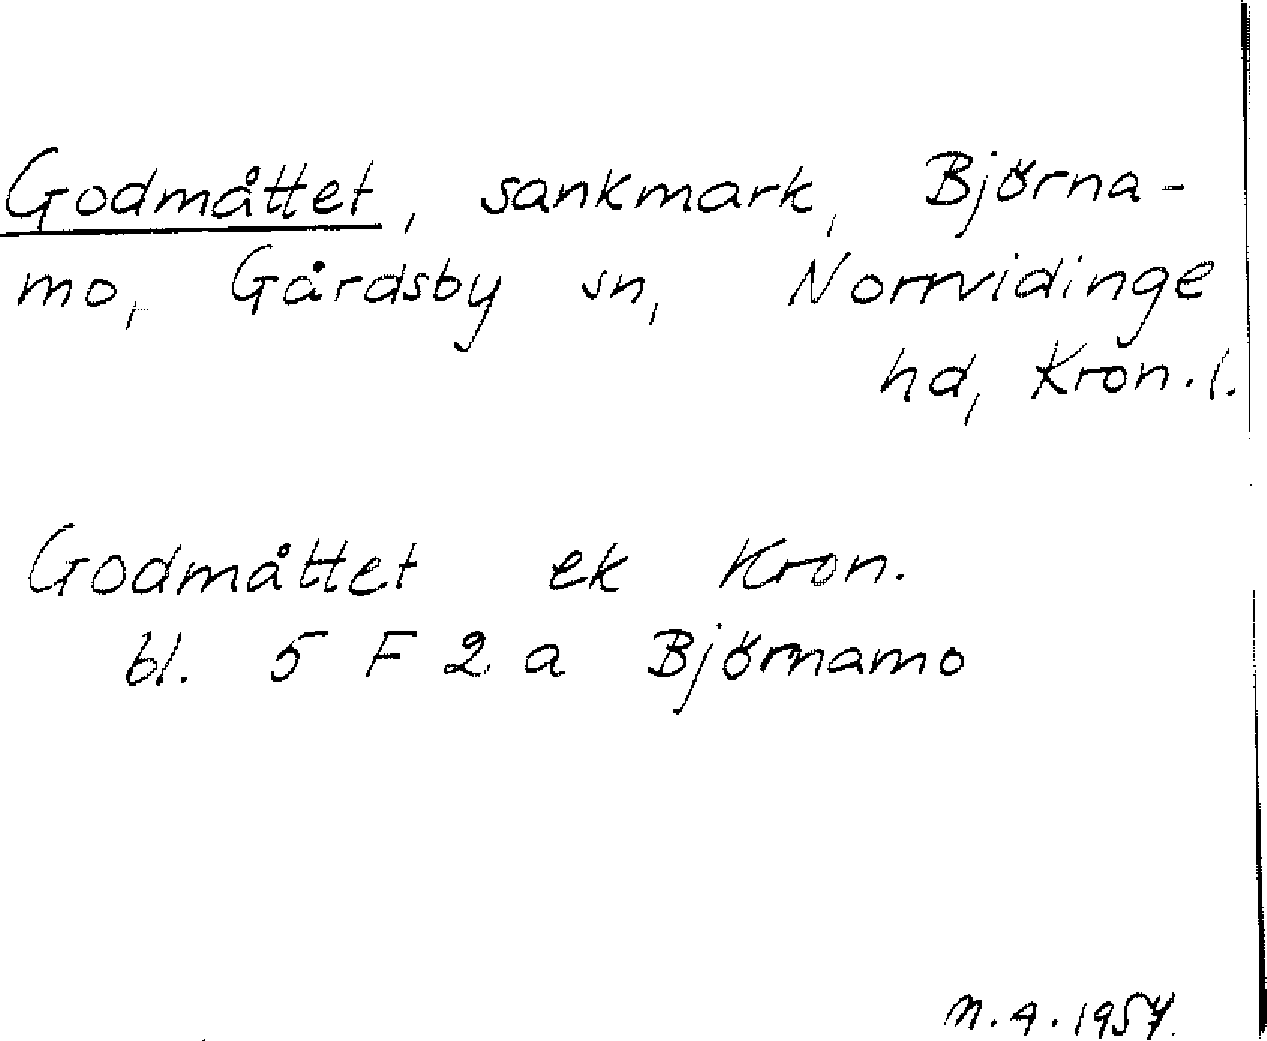 Godmåttet, sankmark, Björna-
mo, Gårdsby sn, Norrvidinge
hd, Kron. l.
Godmåttet ek Kron.
bl. 5 F 2 a Björnamo
N.A. 1957.